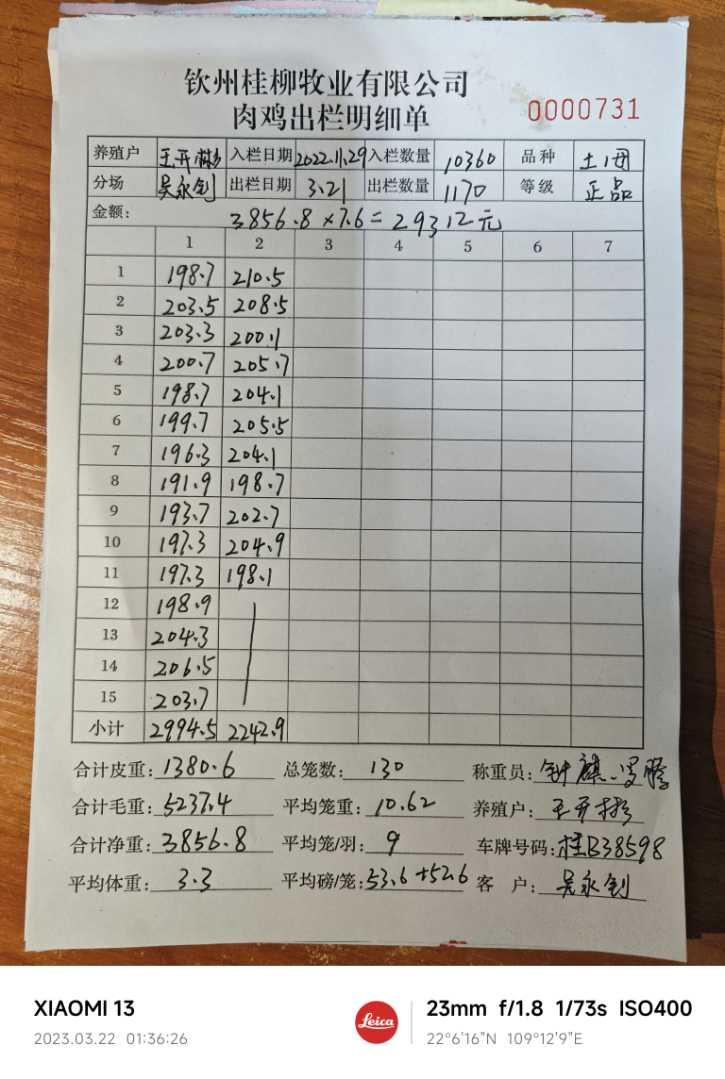 钦州桂柳牧业有限公司
肉鸡出栏明细单 0000731
养殖户 王开彬 入栏日期 2022.11.29 入栏数量 10360 品种 土1母
分场 吴永钊 出栏日期 3.21 出栏数量 1170 等级 正品
金额: 3856.8×7.6=29312元
1 2 3 4 5 6 7
1 198.7 210.5
2 203.5 208.5
3 203.3 200.1
4 200.7 205.7
5 198.7 204.1
6 199.7 205.5
7 196.3 204.1
8 191.9 198.7
9 193.7 202.7
10 197.3 204.9
11 197.3 198.1
12 198.9
13 204.3
14 206.5
15 203.7
小计 2994.5 2242.9
合计皮重: 1380.6 总笼数: 130 称重员:
合计毛重: 5237.4 平均笼重: 10.62 养殖户: 王开彬
合计净重: 3856.8 平均笼/羽: 9 车牌号码: 桂B38598
平均体重: 3.3 平均磅/笼: 53.6+52.6 客 户: 吴永钊
XIAOMI 13 Leica 23mm f/1.8 1/73s ISO400
2023.03.22 01:36:26 22°6'16"N 109°12'9"E